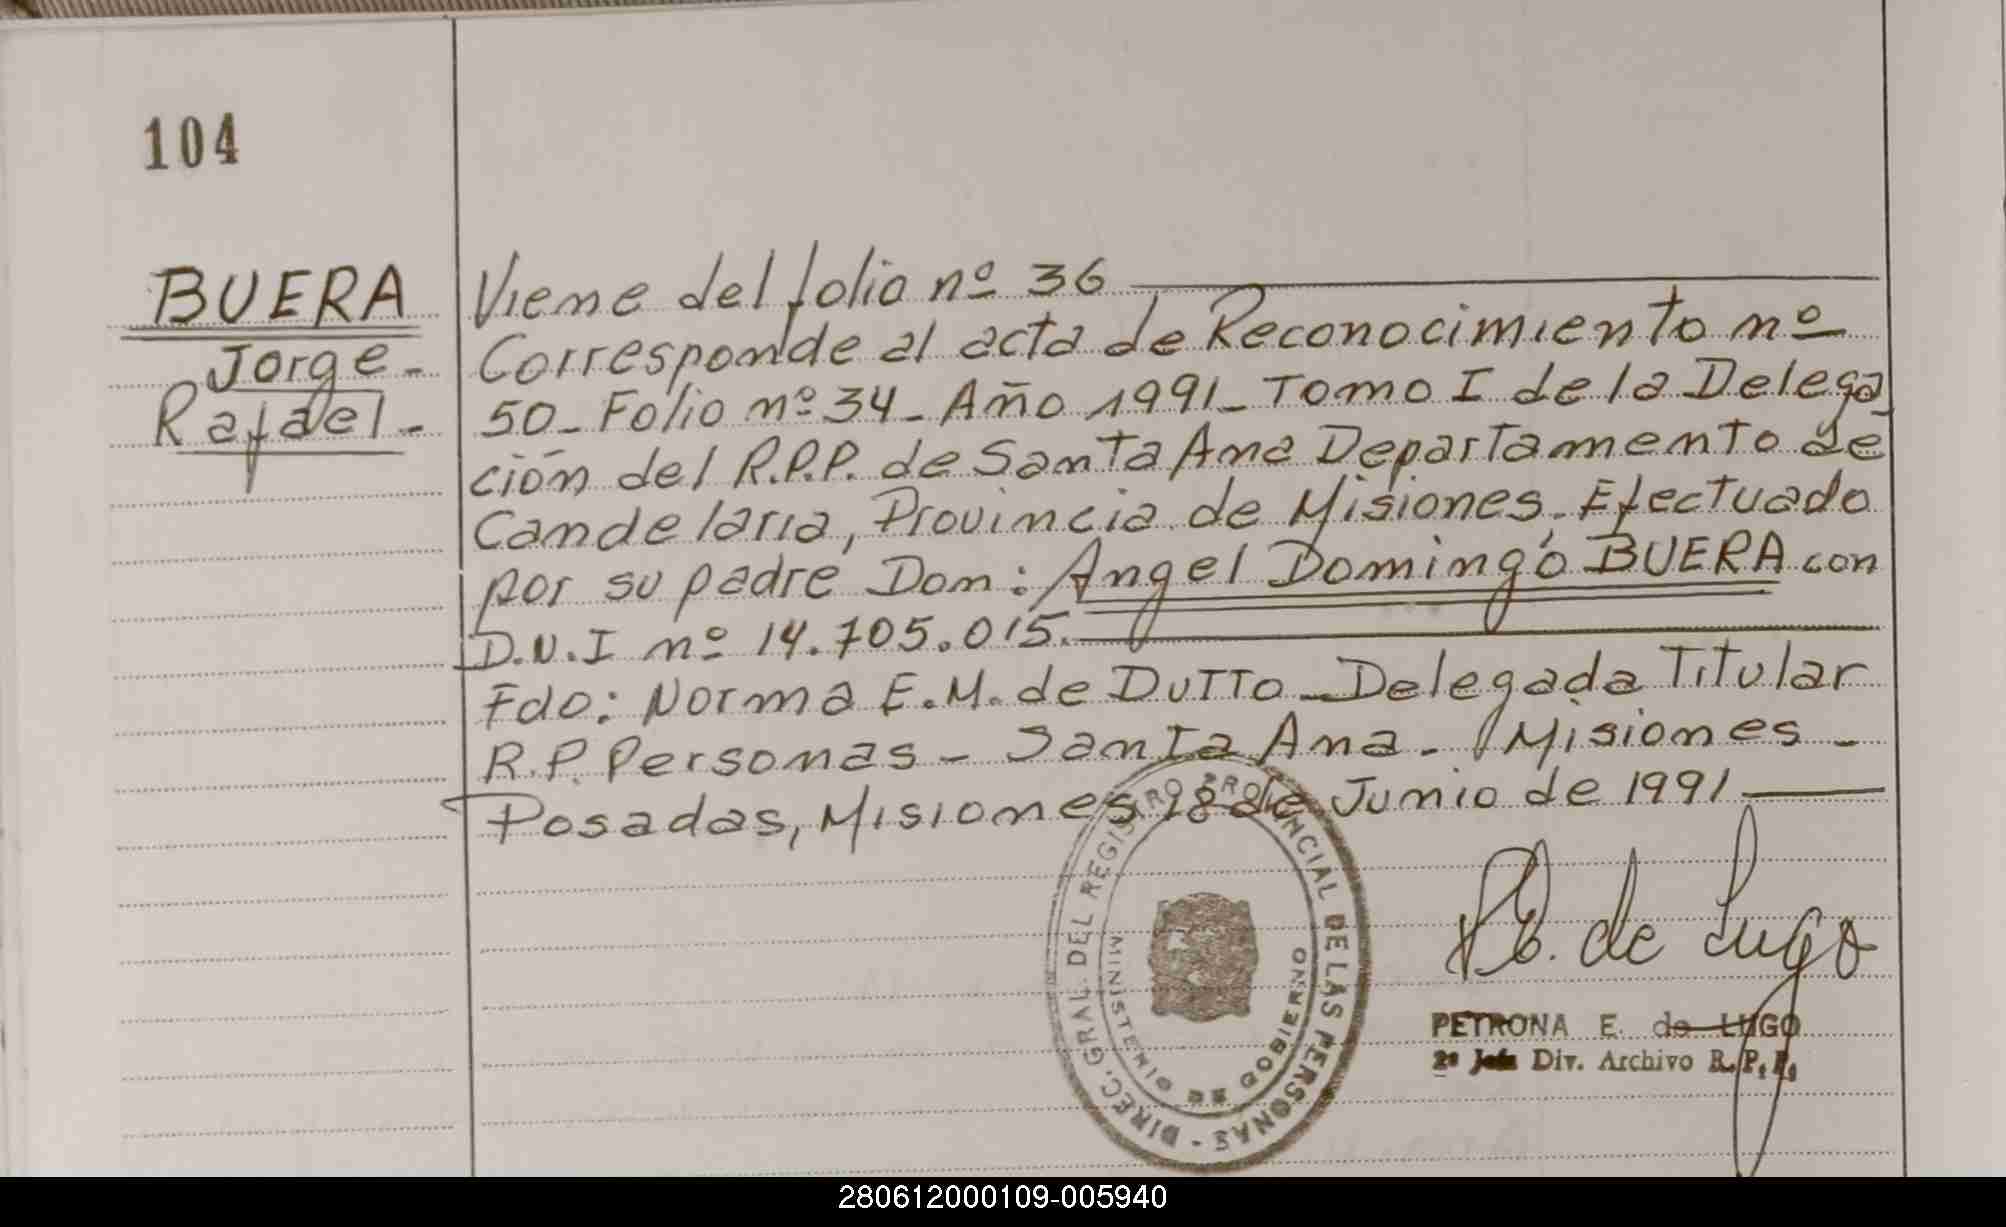 104
BUERA
Jorge -
Rafael -
Viene del folio nº 36
Corresponde al acta de Reconocimiento nº
50 - Folio nº 34 - Año 1991 - Tomo I de la Delega
ción del R.P.P. de Santa Ana Departamento de
Candelaria, Provincia de Misiones. Efectuado
por su padre Don: Angel Domingo BUERA con
D.N.I nº 14.705.015.
Fdo: Norma E.M. de Dutto - Delegada Titular
R.P. Personas - Santa Ana - Misiones -
Posadas, Misiones 18 de Junio de 1991
DIREC. GRAL. DEL REGISTRO PROVINCIAL DE LAS PERSONAS -
MINISTERIO DE GOBIERNO
P.E. de Lugo
PETRONA E. de LUGO
2ª Jefa Div. Archivo R.P.P.
280612000109-005940